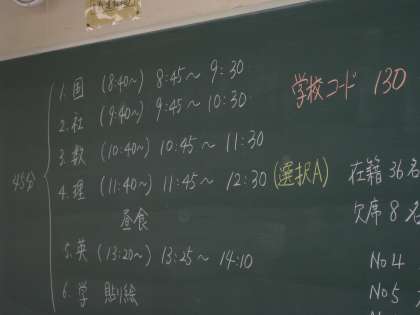 1. 国 (8:40~) 8:45~ 9:30
2. 社 (9:40) 9:45~ 10:30
3. 数 (10:40~) 10:45~ 11:30
4. 理 (11:40~) 11:45~ 12:30 (選択A)
昼食
5. 英 (13:20~) 13:25~ 14:10
6. 学 貼り絵
45分
学校コード 130
在籍 36名
欠席 8名
No 4
No 5